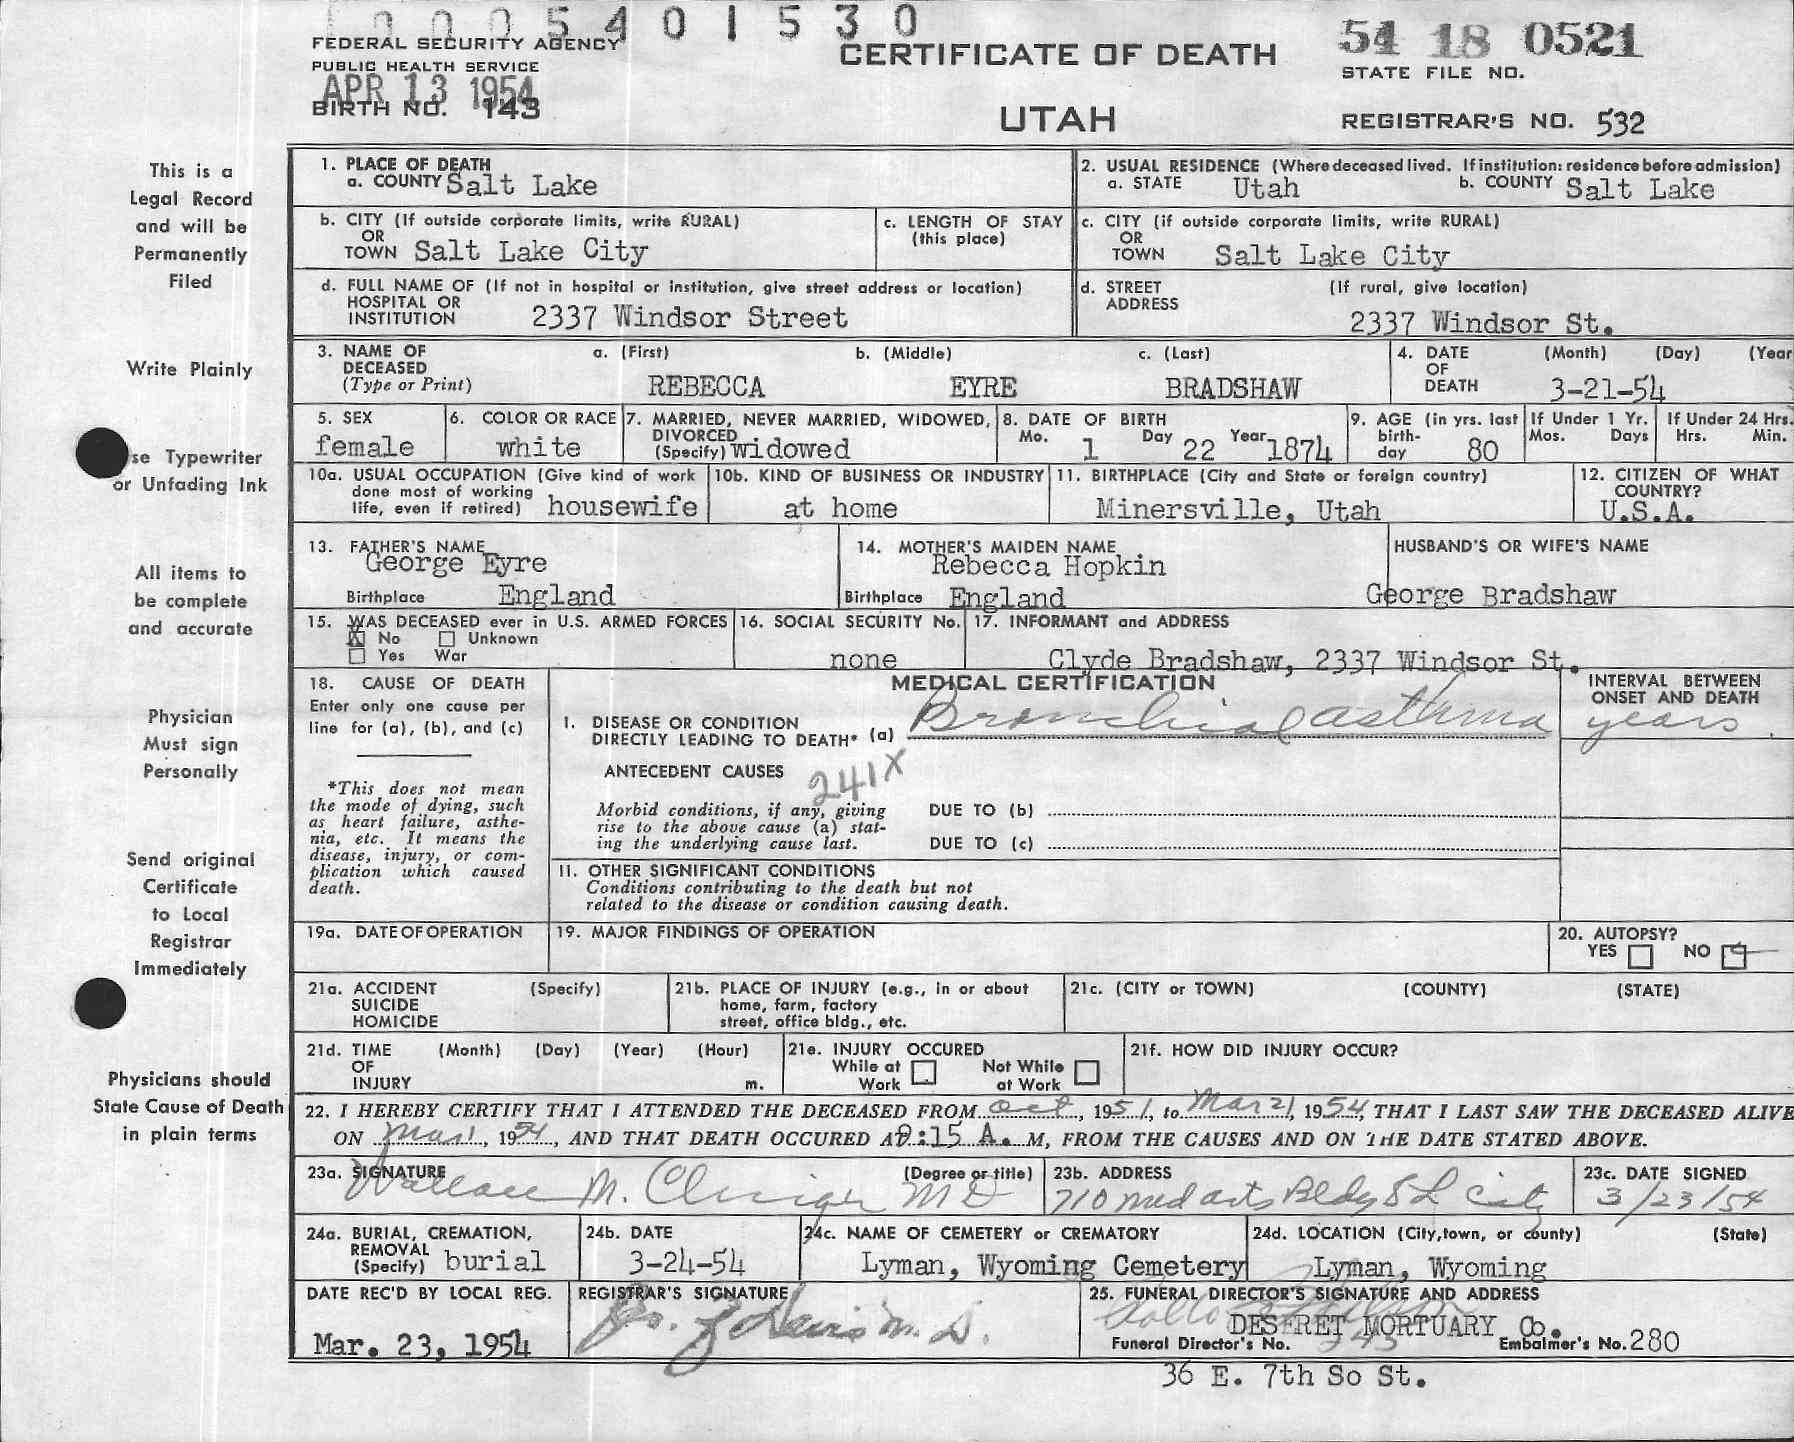 1 0 0 0 5 4 0 1 5 3 0
FEDERAL SECURITY AGENCY
PUBLIC HEALTH SERVICE
APR 13 1954
BIRTH NO. 143
CERTIFICATE OF DEATH
UTAH
54 18 0521
STATE FILE NO.
REGISTRAR'S NO. 532
This is a
Legal Record
and will be
Permanently
Filed
Write Plainly
se Typewriter
or Unfading Ink
All items to
be complete
and accurate
Physician
Must sign
Personally
Send original
Certificate
to Local
Registrar
Immediately
Physicians should
State Cause of Death
in plain terms
1. PLACE OF DEATH
a. COUNTY Salt Lake
2. USUAL RESIDENCE (Where deceased lived. If institution: residence before admission)
a. STATE Utah b. COUNTY Salt Lake
b. CITY (If outside corporate limits, write RURAL)
OR
TOWN Salt Lake City
c. LENGTH OF STAY
(this place)
c. CITY (if outside corporate limits, write RURAL)
OR
TOWN Salt Lake City
d. FULL NAME OF (If not in hospital or institution, give street address or location)
HOSPITAL OR
INSTITUTION 2337 Windsor Street
d. STREET (If rural, give location)
ADDRESS
2337 Windsor St.
3. NAME OF DECEASED (Type or Print)
a. (First) b. (Middle) c. (Last)
REBECCA EYRE BRADSHAW
4. DATE OF DEATH (Month) (Day) (Year
3-21-54
5. SEX
female
6. COLOR OR RACE
white
7. MARRIED, NEVER MARRIED, WIDOWED,
DIVORCED
(Specify) widowed
8. DATE OF BIRTH
Mo. 1 Day 22 Year 1874
9. AGE (in yrs. last
birth-
day 80
If Under 1 Yr.
Mos. Days
If Under 24 Hrs.
Hrs. Min.
10a. USUAL OCCUPATION (Give kind of work
done most of working
life, even if retired) housewife
10b. KIND OF BUSINESS OR INDUSTRY
at home
11. BIRTHPLACE (City and State or foreign country)
Minersville, Utah
12. CITIZEN OF WHAT
COUNTRY?
U.S.A.
13. FATHER'S NAME
George Eyre
Birthplace England
14. MOTHER'S MAIDEN NAME
Rebecca Hopkin
Birthplace England
HUSBAND'S OR WIFE'S NAME
George Bradshaw
15. WAS DECEASED ever in U.S. ARMED FORCES
X No Unknown
Yes War
16. SOCIAL SECURITY No.
none
17. INFORMANT and ADDRESS
Clyde Bradshaw, 2337 Windsor St.
18. CAUSE OF DEATH
Enter only one cause per
line for (a), (b), and (c)
*This does not mean
the mode of dying, such
as heart failure, asthe-
nia, etc. It means the
disease, injury, or com-
plication which caused
death.
MEDICAL CERTIFICATION
I. DISEASE OR CONDITION
DIRECTLY LEADING TO DEATH* (a) Bronchial asthma
INTERVAL BETWEEN
ONSET AND DEATH
years
ANTECEDENT CAUSES
241X
Morbid conditions, if any, giving
rise to the above cause (a) stat-
ing the underlying cause last.
DUE TO (b)
DUE TO (c)
II. OTHER SIGNIFICANT CONDITIONS
Conditions contributing to the death but not
related to the disease or condition causing death.
19a. DATE OF OPERATION
19. MAJOR FINDINGS OF OPERATION
20. AUTOPSY?
YES NO
21a. ACCIDENT (Specify)
SUICIDE
HOMICIDE
21b. PLACE OF INJURY (e.g., in or about
home, farm, factory
street, office bldg., etc.
21c. (CITY or TOWN) (COUNTY) (STATE)
21d. TIME (Month) (Day) (Year) (Hour)
OF
INJURY m.
21e. INJURY OCCURED
While at Work Not While at Work
21f. HOW DID INJURY OCCUR?
22. I HEREBY CERTIFY THAT I ATTENDED THE DECEASED FROM Oct, 1951, to Mar 21, 1954, THAT I LAST SAW THE DECEASED ALIVE
ON Mar 1, 1954, AND THAT DEATH OCCURED AT :15 A. M, FROM THE CAUSES AND ON THE DATE STATED ABOVE.
23a. SIGNATURE (Degree or title)
Wallace M. MD
23b. ADDRESS
710 Med arts Bldg S L City
23c. DATE SIGNED
3/23/54
24a. BURIAL, CREMATION,
REMOVAL
(Specify) burial
24b. DATE
3-24-54
24c. NAME OF CEMETERY or CREMATORY
Lyman, Wyoming Cemetery
24d. LOCATION (City, town, or county) (State)
Lyman, Wyoming
DATE REC'D BY LOCAL REG.
Mar. 23, 1954
REGISTRAR'S SIGNATURE
M.D.
25. FUNERAL DIRECTOR'S SIGNATURE AND ADDRESS
DESERET MORTUARY Co.
Funeral Director's No. Embalmer's No. 280
36 E. 7th So St.